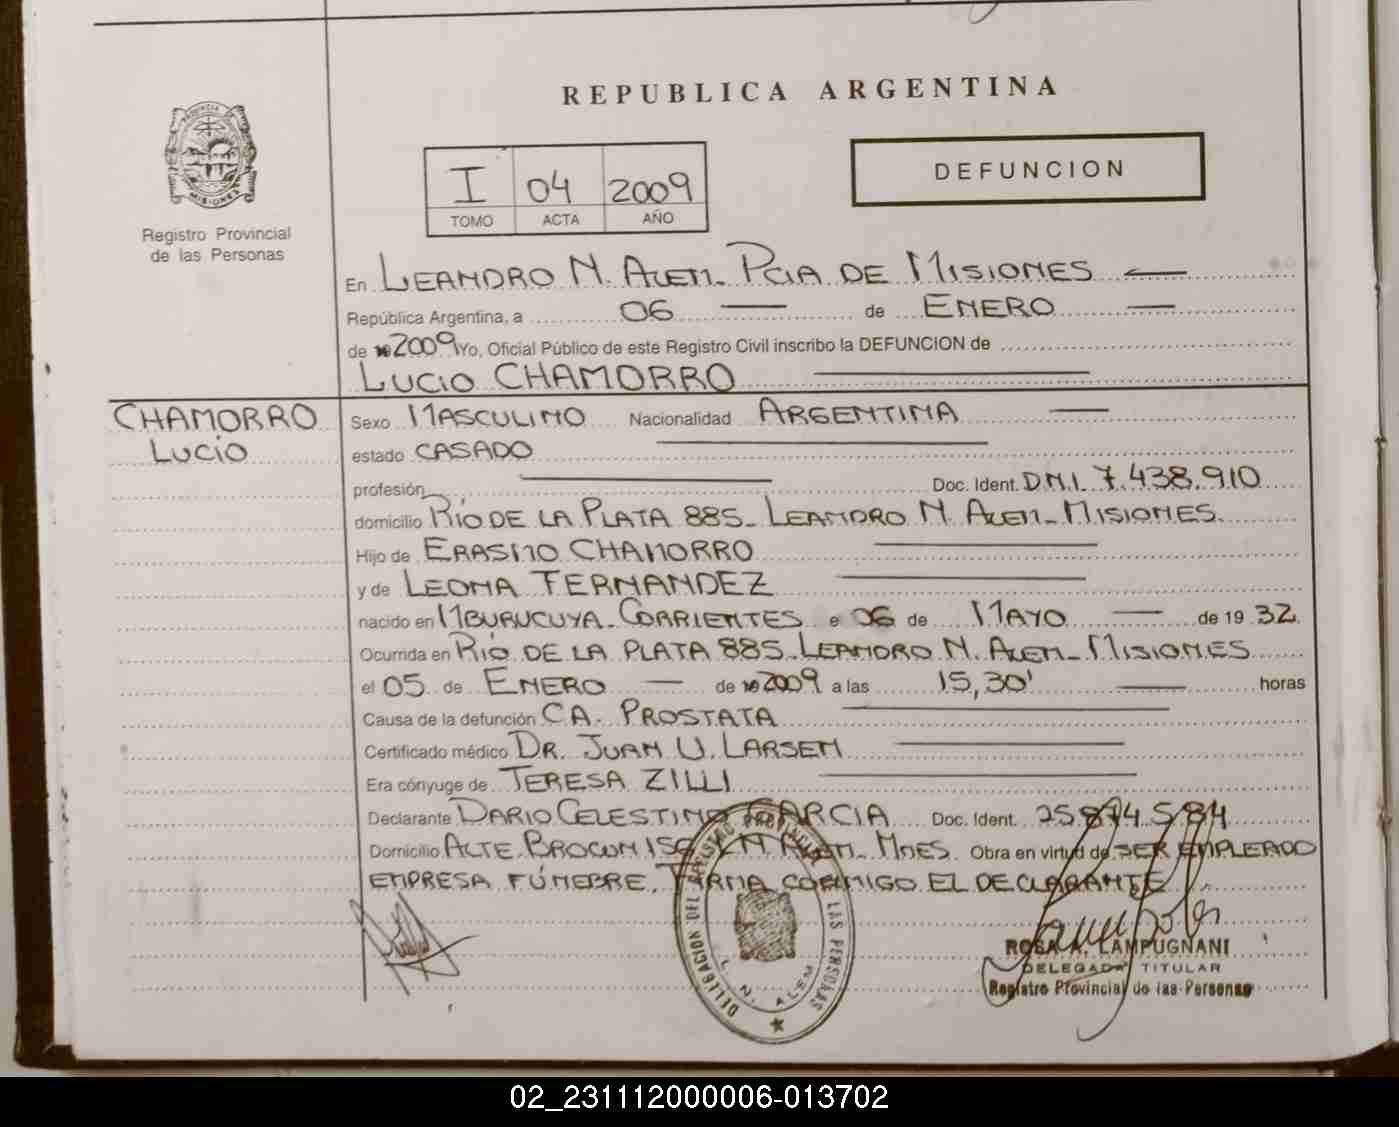 REPUBLICA ARGENTINA
PROVINCIA DE
MISIONES
Registro Provincial
de las Personas
I 04 2009
TOMO ACTA AÑO
DEFUNCION
En LEANDRO N. ALEM - PCIA DE MISIONES
República Argentina, a 06 de ENERO
de 2009 Yo, Oficial Público de este Registro Civil inscribo la DEFUNCION de
LUCIO CHAMORRO
CHAMORRO
LUCIO
Sexo MASCULINO Nacionalidad ARGENTINA
estado CASADO
profesión Doc. Ident. D.N.I. 7.438.910
domicilio RÍO DE LA PLATA 885 - LEANDRO N. ALEM - MISIONES.
Hijo de ERASMO CHAMORRO
y de LEONA FERNANDEZ
nacido en MBURUCUYA - CORRIENTES e 06 de MAYO de 19 32
Ocurrida en RÍO DE LA PLATA 885 - LEANDRO N. ALEM - MISIONES
el 05 de ENERO de 2009 a las 15,30' horas
Causa de la defunción CA. PROSTATA
Certificado médico DR. JUAN U. LARSEN
Era cónyuge de TERESA ZILLI
Declarante DARIO CELESTINO GARCIA Doc. Ident. 25.874.584
Domicilio ALTE. BROWN L.N. ALEM - MNES. Obra en virtud de SER EMPLEADO
EMPRESA FÚNEBRE. FIRMA CONMIGO EL DECLARANTE
DELEGACION DEL REGISTRO PROVINCIAL DE LAS PERSONAS
L. N. ALEM
ROSA A. LAMPUGNANI
DELEGADA TITULAR
Registro Provincial de las Personas
02_231112000006-013702